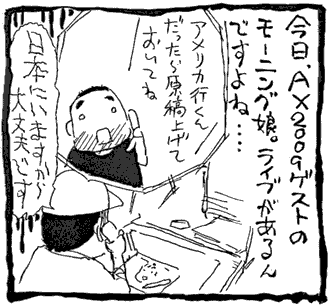 今日、AX2009ゲストの
モーニング娘。ライブがあるん
ですよね‥‥
アメリカ行くん
だったら原稿上げて
おいてね
日本にいますから
大丈夫です